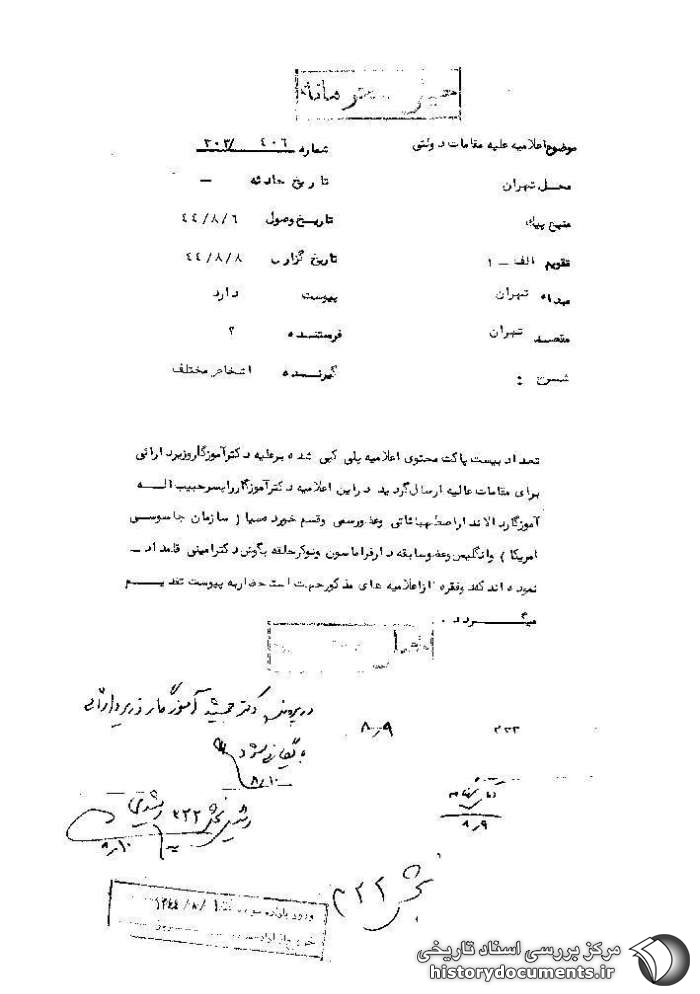 خیلی محرمانه
موضوع اعلامیه علیه مقامات دولتی
شماره ۴۰۶ /۳۰۳
محل تهران
تاریخ حادثه —
منبع پیک
تاریخ وصول ۴۴/۸/۶
تقویم الف – ۱
تاریخ گزارش ۴۴/۸/۸
مبداء تهران
پیوست دارد
مقصد تهران
فرستنده ؟
شرح :
گیرنده اشخاص مختلف
تعداد بیست پاکت محتوی اعلامیه پلی کپی شده برعلیه دکترآموزگاروزیردارائی
برای مقامات عالیه ارسال گردید دراین اعلامیه دکترآموزگارراپسرحبیب اله
آموزگار وعضورسمی وقسم خورده سیا ( سازمان جاسوسی
امریکا ) وانگلیس وعضوسابقه دارفراماسون ونوکرحلقه بگوش دکترامینی قلمداد –
نموده اندکه وفقره ازاعلامیه های مذکورجهت استحضاربه پیوست تقدیم
میگردد .
در پرونده دکتر جمشید آموزگار وزیر دارائی
بایگانی شود
۸/۱۰
۸/۹
۳۲۲
۸/۹
بخش ۳۲۲ رشیدی
۸/۱۰
بخش ۳۲۲
۱۳۴۴/۸/
مرکز بررسی اسناد تاریخی
historydocuments.ir